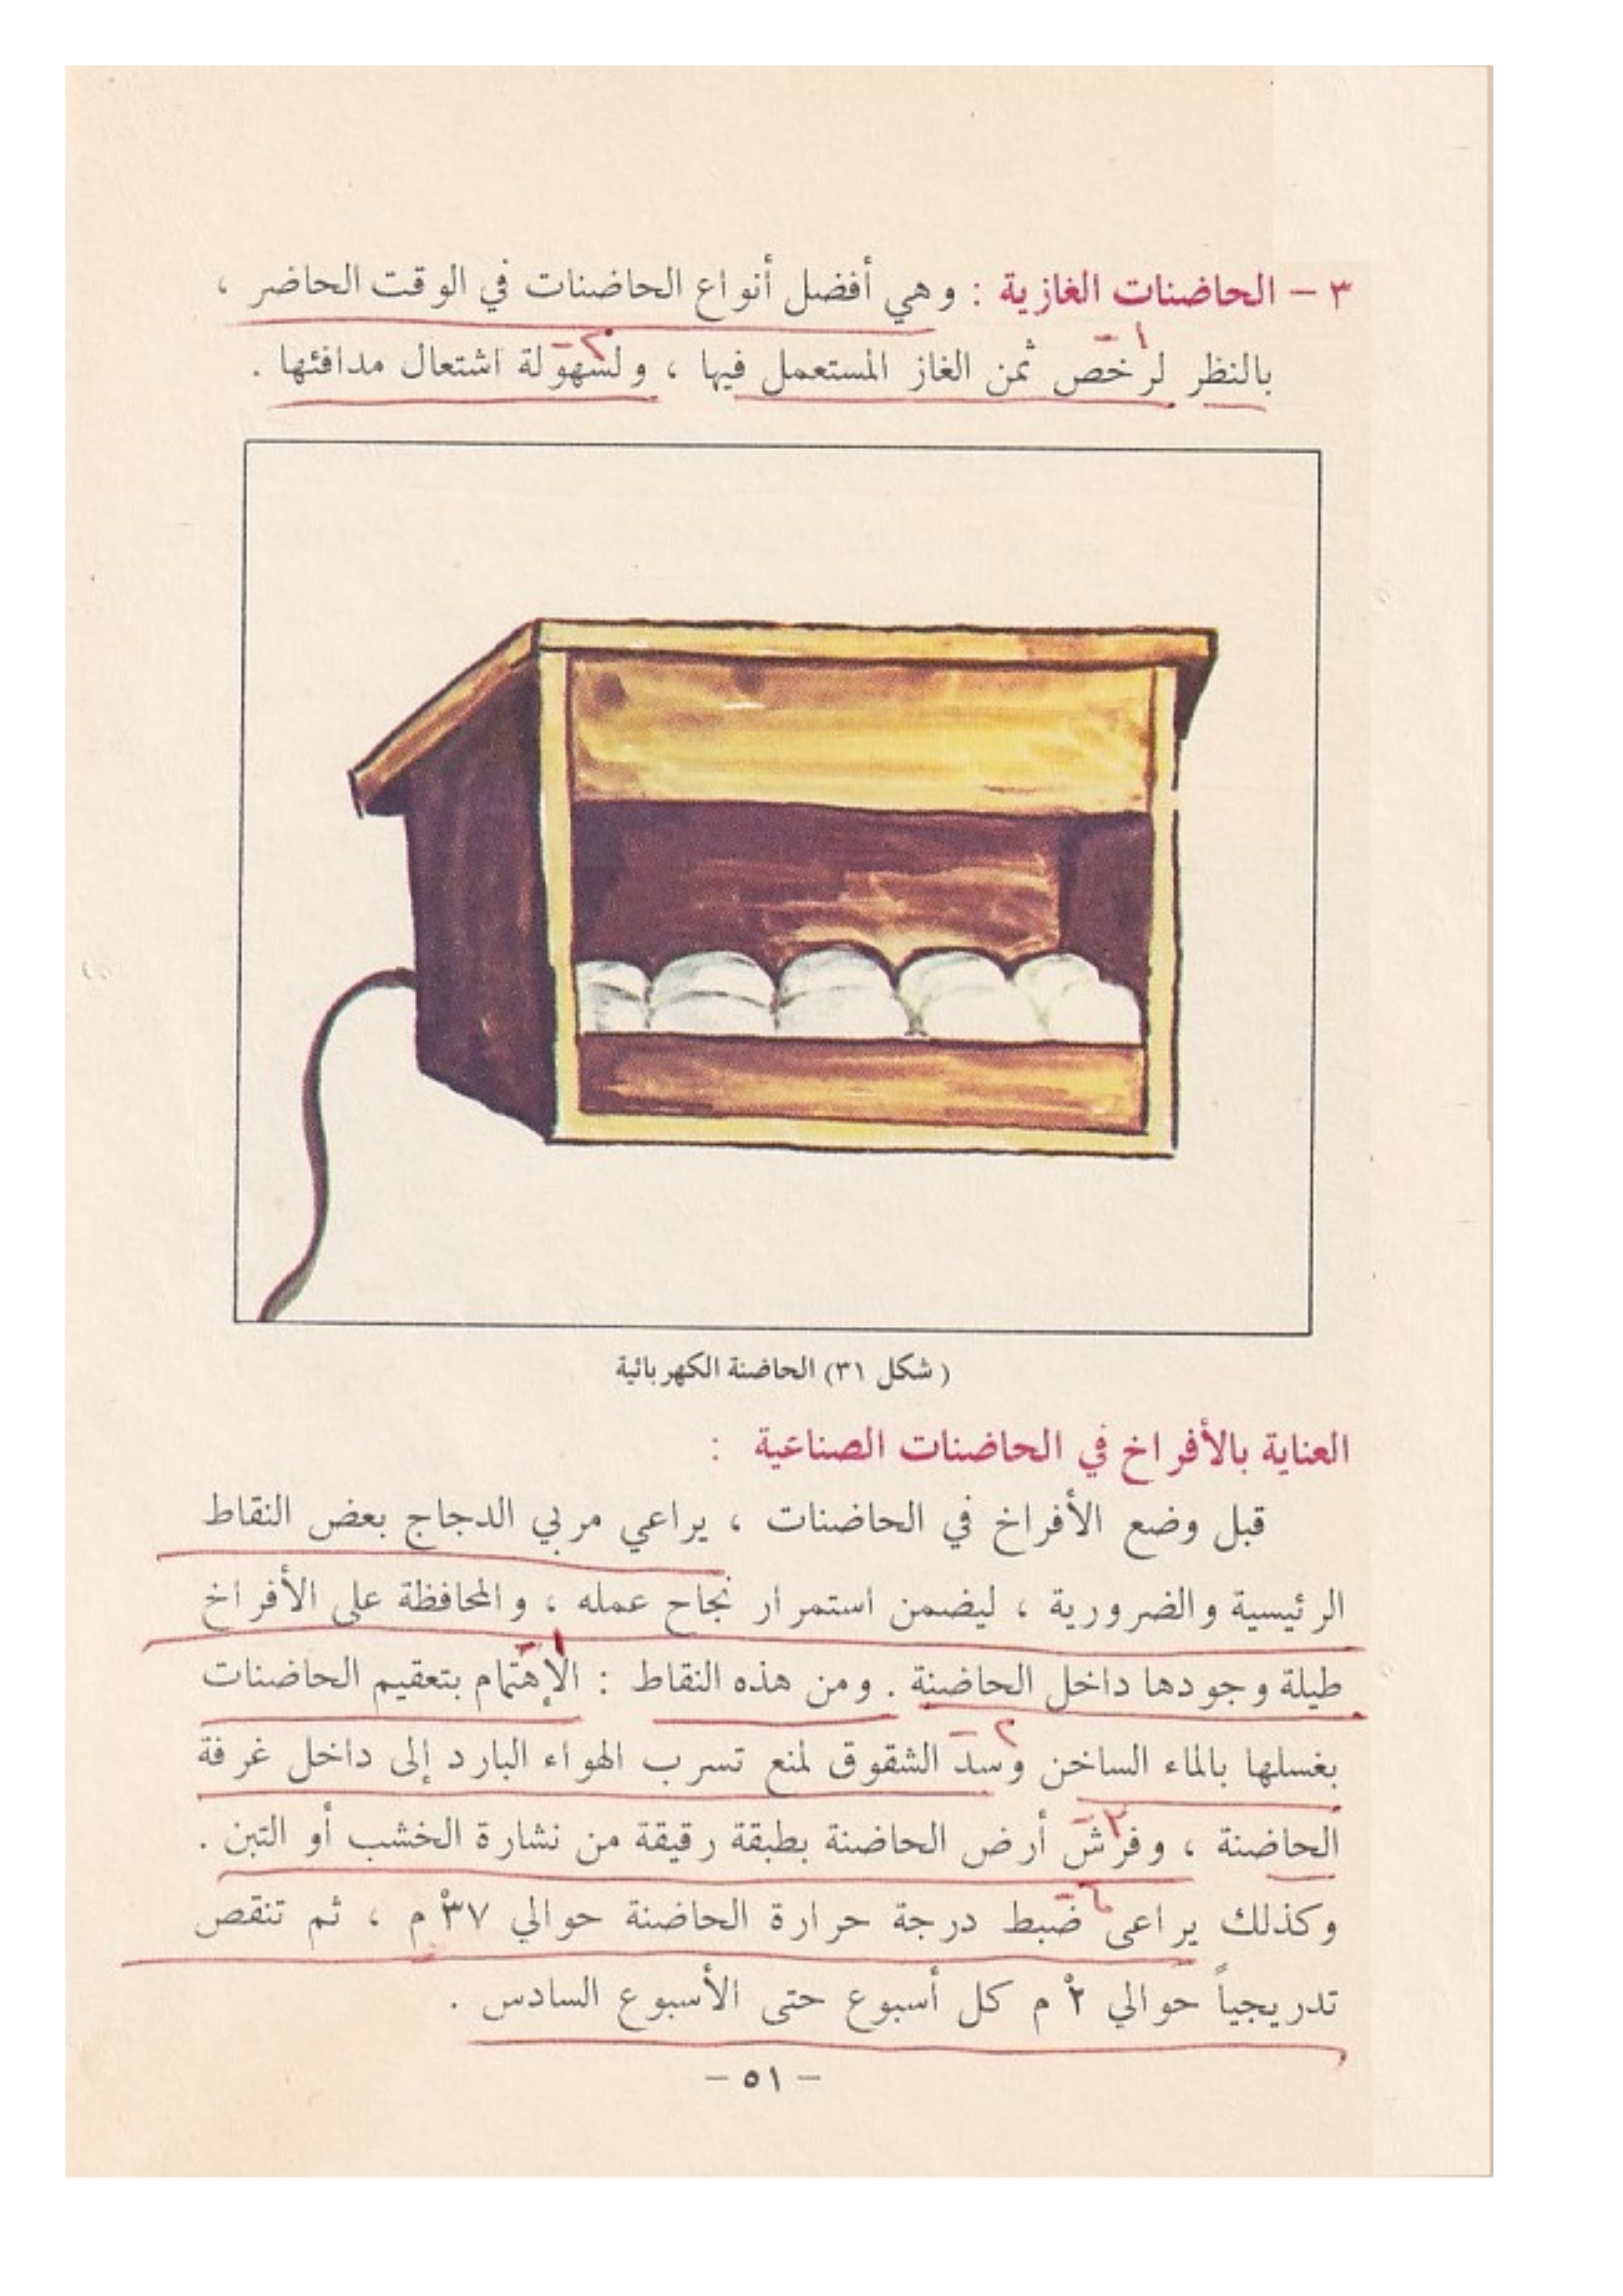 ٣ – الحاضنات الغازية : وهي أفضل أنواع الحاضنات في الوقت الحاضر ،
بالنظر لرخص ثمن الغاز المستعمل فيها ، ولسهولة اشتعال مدافئها .
١ –
٢ –
( شكل ٣١) الحاضنة الكهربائية
العناية بالأفراخ في الحاضنات الصناعية :
قبل وضع الأفراخ في الحاضنات ، يراعي مربي الدجاج بعض النقاط
الرئيسية والضرورية ، ليضمن استمرار نجاح عمله ، والمحافظة على الأفراخ
طيلة وجودها داخل الحاضنة . ومن هذه النقاط : الإهتمام بتعقيم الحاضنات
١ –
بغسلها بالماء الساخن وسد الشقوق لمنع تسرب الهواء البارد إلى داخل غرفة
٢ –
الحاضنة ، وفرش أرض الحاضنة بطبقة رقيقة من نشارة الخشب أو التبن .
٣ –
وكذلك يراعى ضبط درجة حرارة الحاضنة حوالي ٣٧° م ، ثم تنقص
٤ –
تدريجياً حوالي ٢° م كل أسبوع حتى الأسبوع السادس .
– ٥١ –